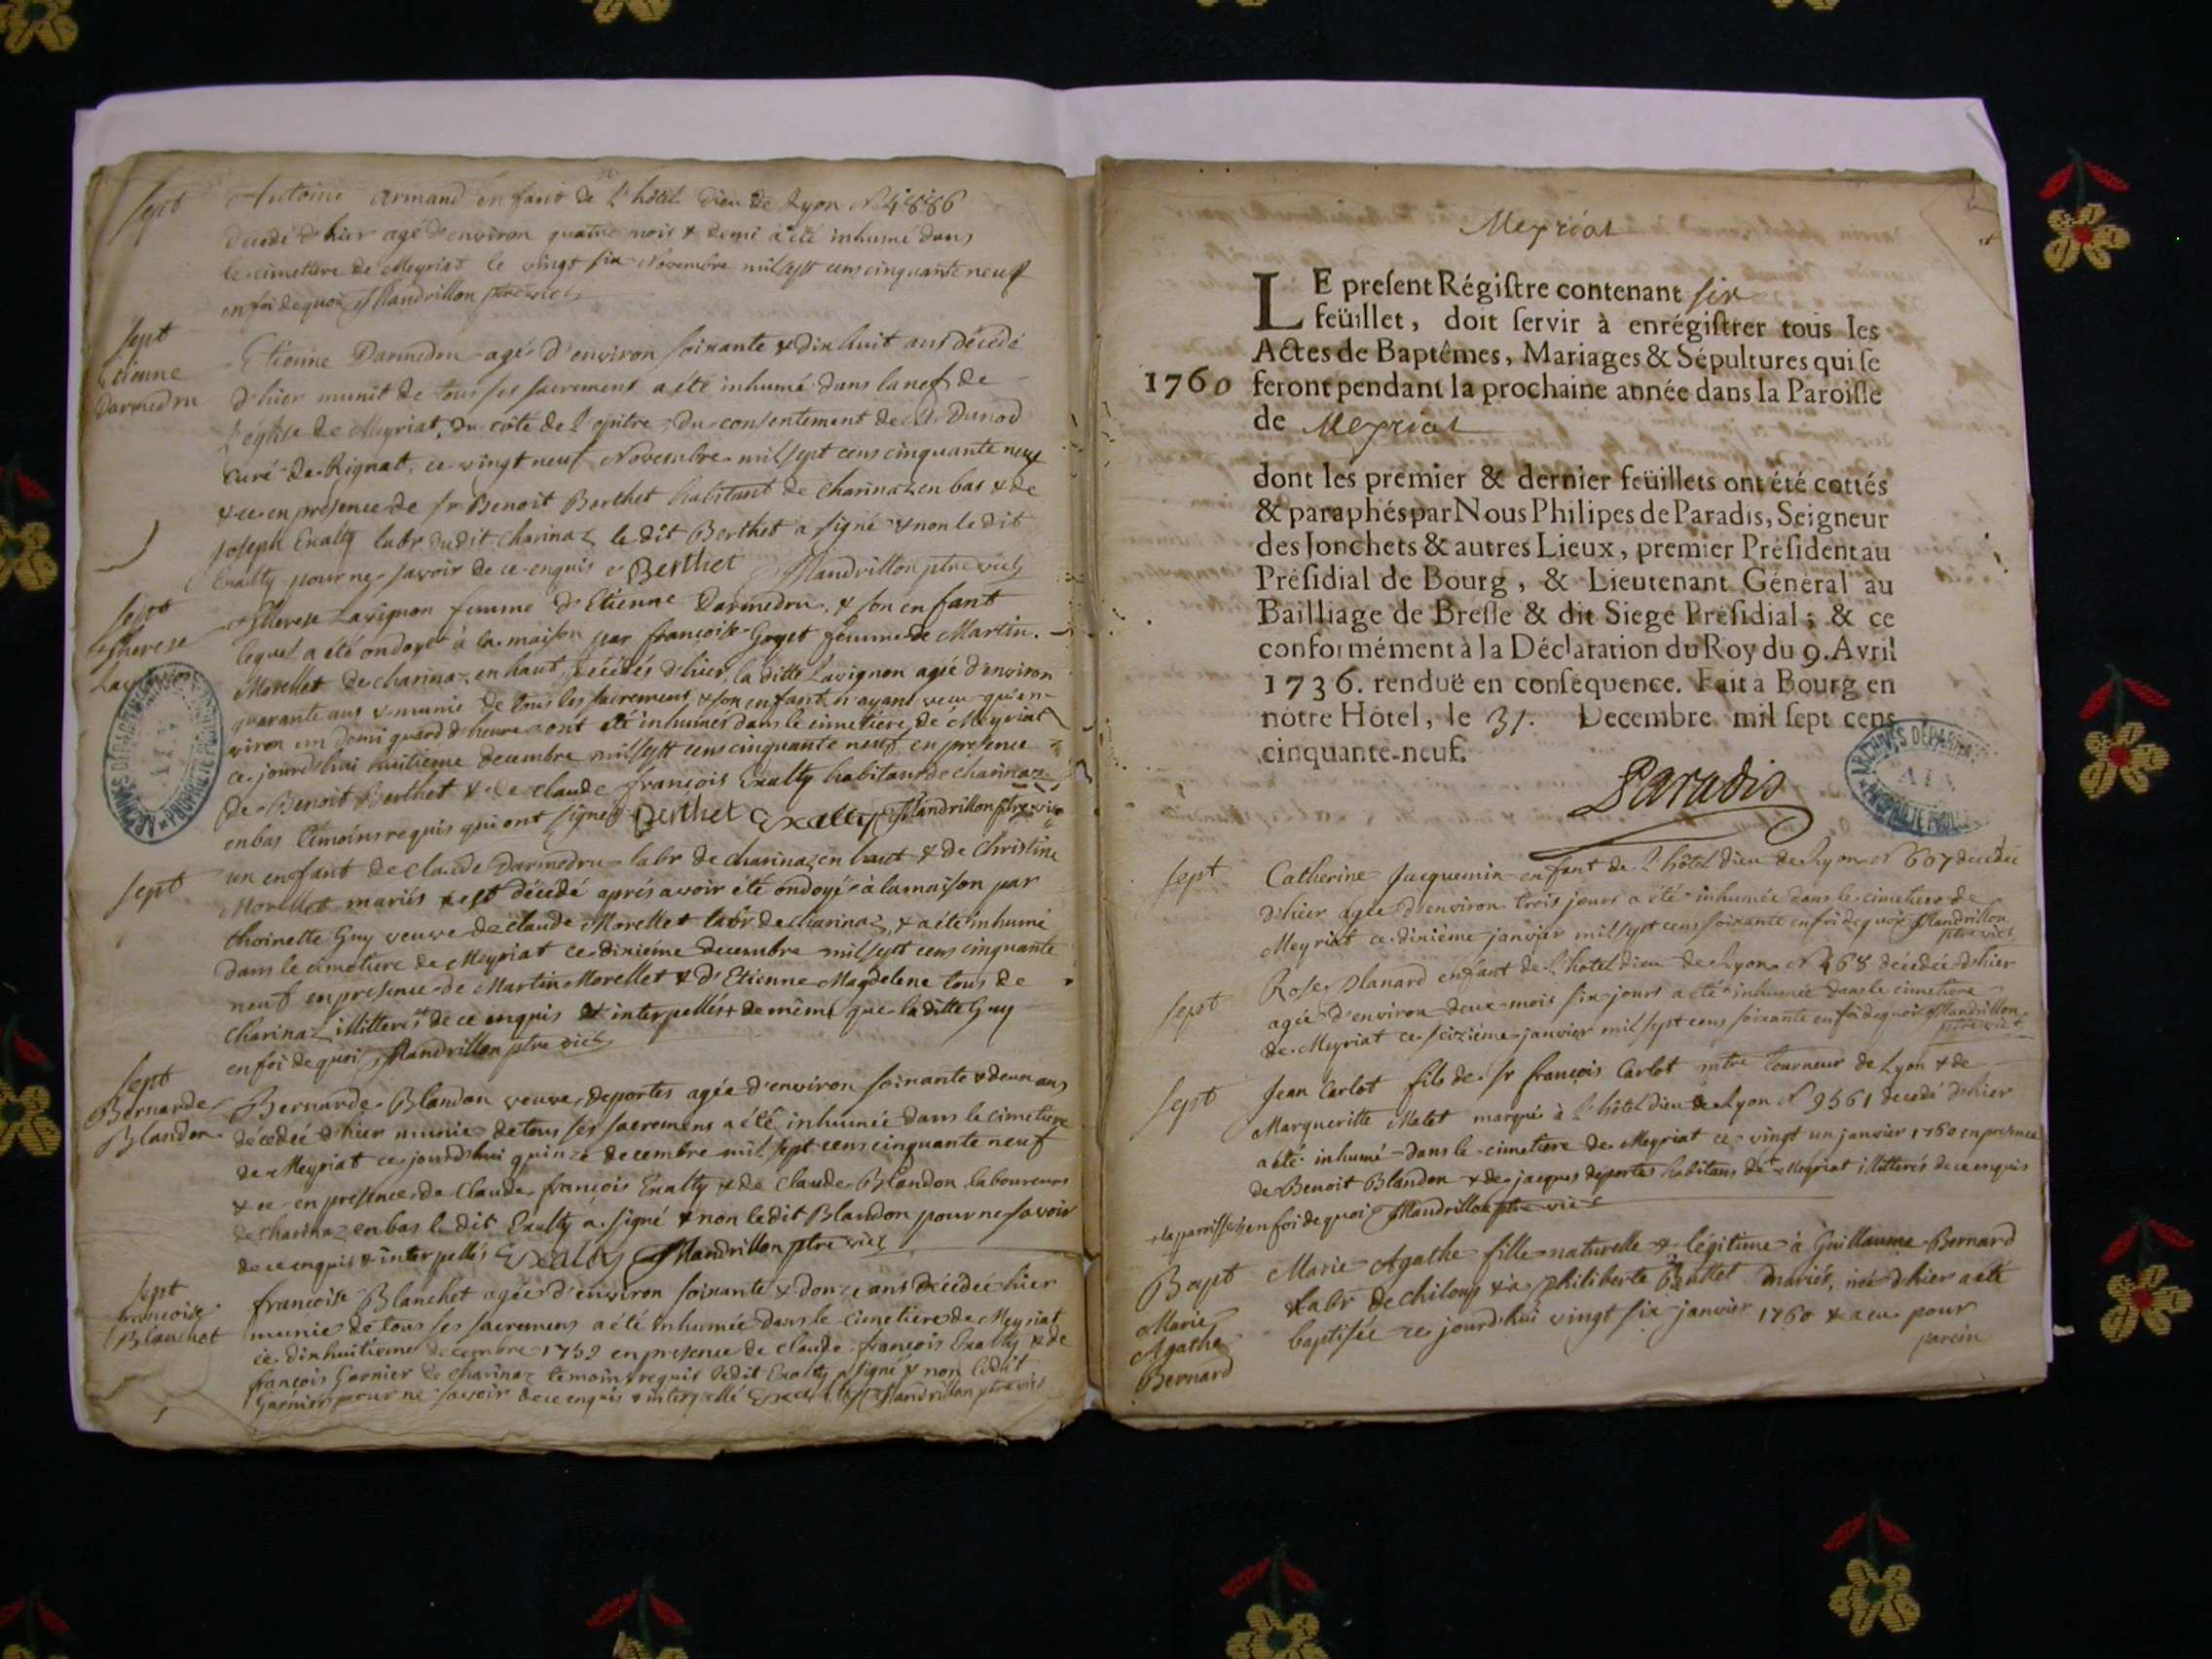 Sept
Antoine Armand enfant de l'hôtel Dieu de Lyon N 4886
décédé d'hier agé d'environ quatre mois & demi a été inhumé dans
le cimettere de Meyriat le vingt six Novembre mil sept cens cinquante neuf
en foi de quoi Mandrillon ptre vic
Sept
Etienne
Darmedru
Etienne Darmedru agé d'environ soixante & dix huit ans décédé
d'hier munit de tous ses sacremens a été inhumé dans la nef de
l'église de Meyriat, du côté de l'epitre, du consentement de Mr Dunod
curé de Rignat, ce vingt neuf Novembre mil sept cens cinquante neuf
& ce en présence de sr Benoit Berthet habitant de charinaz en bas & de
joseph Exalty labr dudit charinaz le dit Berthet a signé & non le dit
Exalty pour ne savoir de ce enquis Berthet Mandrillon ptre vic
Sept
Therese
Lav
Therese Lavignon femme d'Etienne Darmedru, & son enfant
lequel a été ondoyé à la maison par françoise Goyet femme de Martin
Morellet de charinaz en haut, décédés d'hier, la ditte Lavignon agée d'environ
quarante ans & munie de tous les sacremens & son enfant n'ayant vecu qu'en-
viron un demi quard d'heure ont été inhumés dans le cimetiere de Meyriat
ce jourd'hui huitieme decembre mil sept cens cinquante neuf en presence
de Benoit Berthet & de claude françois Exalty habitans de charinaz
en bas témoins requis qui ont signé Berthet Exalty Mandrillon ptre vic
ARCHIVES DÉPARTEMENTALES
AIN
PROPRIÉTÉ PUBLIQUE
Sept
un enfant de claude Darmedru labr de charinaz en haut & de christine
Morellet mariés & est décédé aprés avoir été ondoyé à la maison par
thoinette Guy veuve de claude Morellet labr de charinaz, & a été inhumé
dans le cimetiere de Meyriat ce dixiéme decembre mil sept cens cinquante
neuf en presence de Martin Morellet & d'Etienne Magdelene tous de
charinaz illitterés de ce enquis & interpellés de même que la ditte Guy
en foi de quoi Mandrillon ptre vic
Sept
Bernarde
Blandon
Bernarde Blandon veuve deportes agée d'environ soixante & deux ans
décédée d'hier munie de tous ses sacremens a été inhumée dans le cimetiere
de Meyriat ce jourd'hui quinze decembre mil sept cens cinquante neuf
& ce en presence de Claude françois Exalty & de Claude Blandon laboureurs
de charinaz en bas le dit Exalty a signé & non le dit Blandon pour ne savoir
de ce enquis & interpellés Exalty Mandrillon ptre vic
Sept
françoise
Blanchet
françoise Blanchet agée d'environ soixante & douze ans décédée hier
munie de tous ses sacremens a été inhumée dans le cimetiere de Meyriat
ce dix huitieme decembre 1759 en presence de claude françois Exalty & de
françois Garnier de charinaz temoins requis ledit Exalty a signé & non ledit
Garnier pour ne savoir de ce enquis & interpellé Exalty Mandrillon ptre vic
Meyriat
LE present Régistre contenant six
feüillet, doit servir à enrégistrer tous les
Actes de Baptêmes, Mariages & Sépultures qui se
1760 feront pendant la prochaine année dans la Paroisse
de Meyriat
dont les premier & dernier feüillets ont été cottés
& paraphés par Nous Philipes de Paradis, Seigneur
des Jonchets & autres Lieux, premier Président au
Présidial de Bourg, & Lieutenant Général au
Bailliage de Bresse & dit Siege Présidial; & ce
conformément à la Déclaration du Roy du 9. Avril
1736. renduë en consequence. Fait à Bourg en
nôtre Hôtel, le 31. Decembre mil sept cens
cinquante-neuf.
Paradis
ARCHIVES DÉPARTEMENTALES
AIN
PROPRIÉTÉ PUBLIQUE
Sept
Catherine Jacquemin enfant de l'hôtel dieu de Lyon N 607 decedée
d'hier agée d'environ trois jours a été inhumée dans le cimetiere de
Meyriat ce dixiéme janvier mil sept cens soixante en foi de quoi Mandrillon
ptre vic
Sept
Rose Planard enfant de l'hotel dieu de Lyon N 468 décédée d'hier
agée d'environ deux mois six jours a été inhumée dans le cimetiere
de Meyriat ce seiziéme janvier mil sept cens soixante en foi de quoi Mandrillon
ptre vic
Sept
Jean Carlot fils de sr françois Carlot mtre Tourneur de Lyon & de
Margueritte Matet marqué à l'hôtel dieu de Lyon N 9561 decedé d'hier
a été inhumé dans le cimetiere de Meyriat ce vingt un janvier 1760 en presence
de Benoit Blandon & de jacques deportes habitans de Meyriat illitterés de ce enquis
en foi de quoi Mandrillon ptre vic
Bapt
Marie
Agathe
Bernard
Marie Agathe fille naturelle & légitime à Guillaume Bernard
labr de chiloup & à philiberte Buttet mariés, née d'hier a été
baptisée ce jourd'hui vingt six janvier 1760 & a eu pour
parein